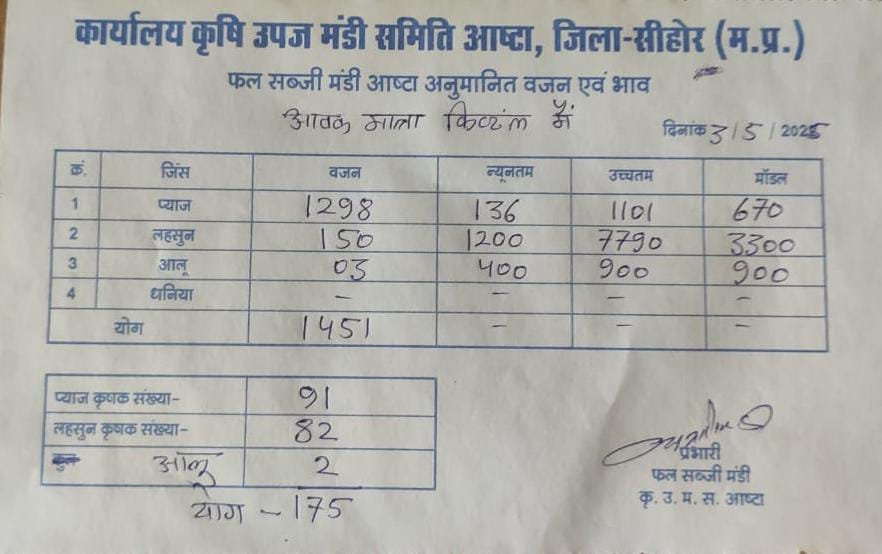 कार्यालय कृषि उपज मंडी समिति आष्टा, जिला-सीहोर (म.प्र.)
फल सब्जी मंडी आष्टा अनुमानित वजन एवं भाव
आवक मात्रा क्विंटल में
दिनांक 3/5/2025
क्रं. जिंस वजन न्यूनतम उच्चतम मॉडल
1 प्याज 1298 136 1101 670
2 लहसुन 150 1200 7790 3300
3 आलू 03 400 900 900
4 धनिया - - - -
योग 1451 - - -
प्याज कृषक संख्या- 91
लहसुन कृषक संख्या- 82
आलू 2
योग - 175
प्रभारी
फल सब्जी मंडी
कृ. उ. म. स. आष्टा